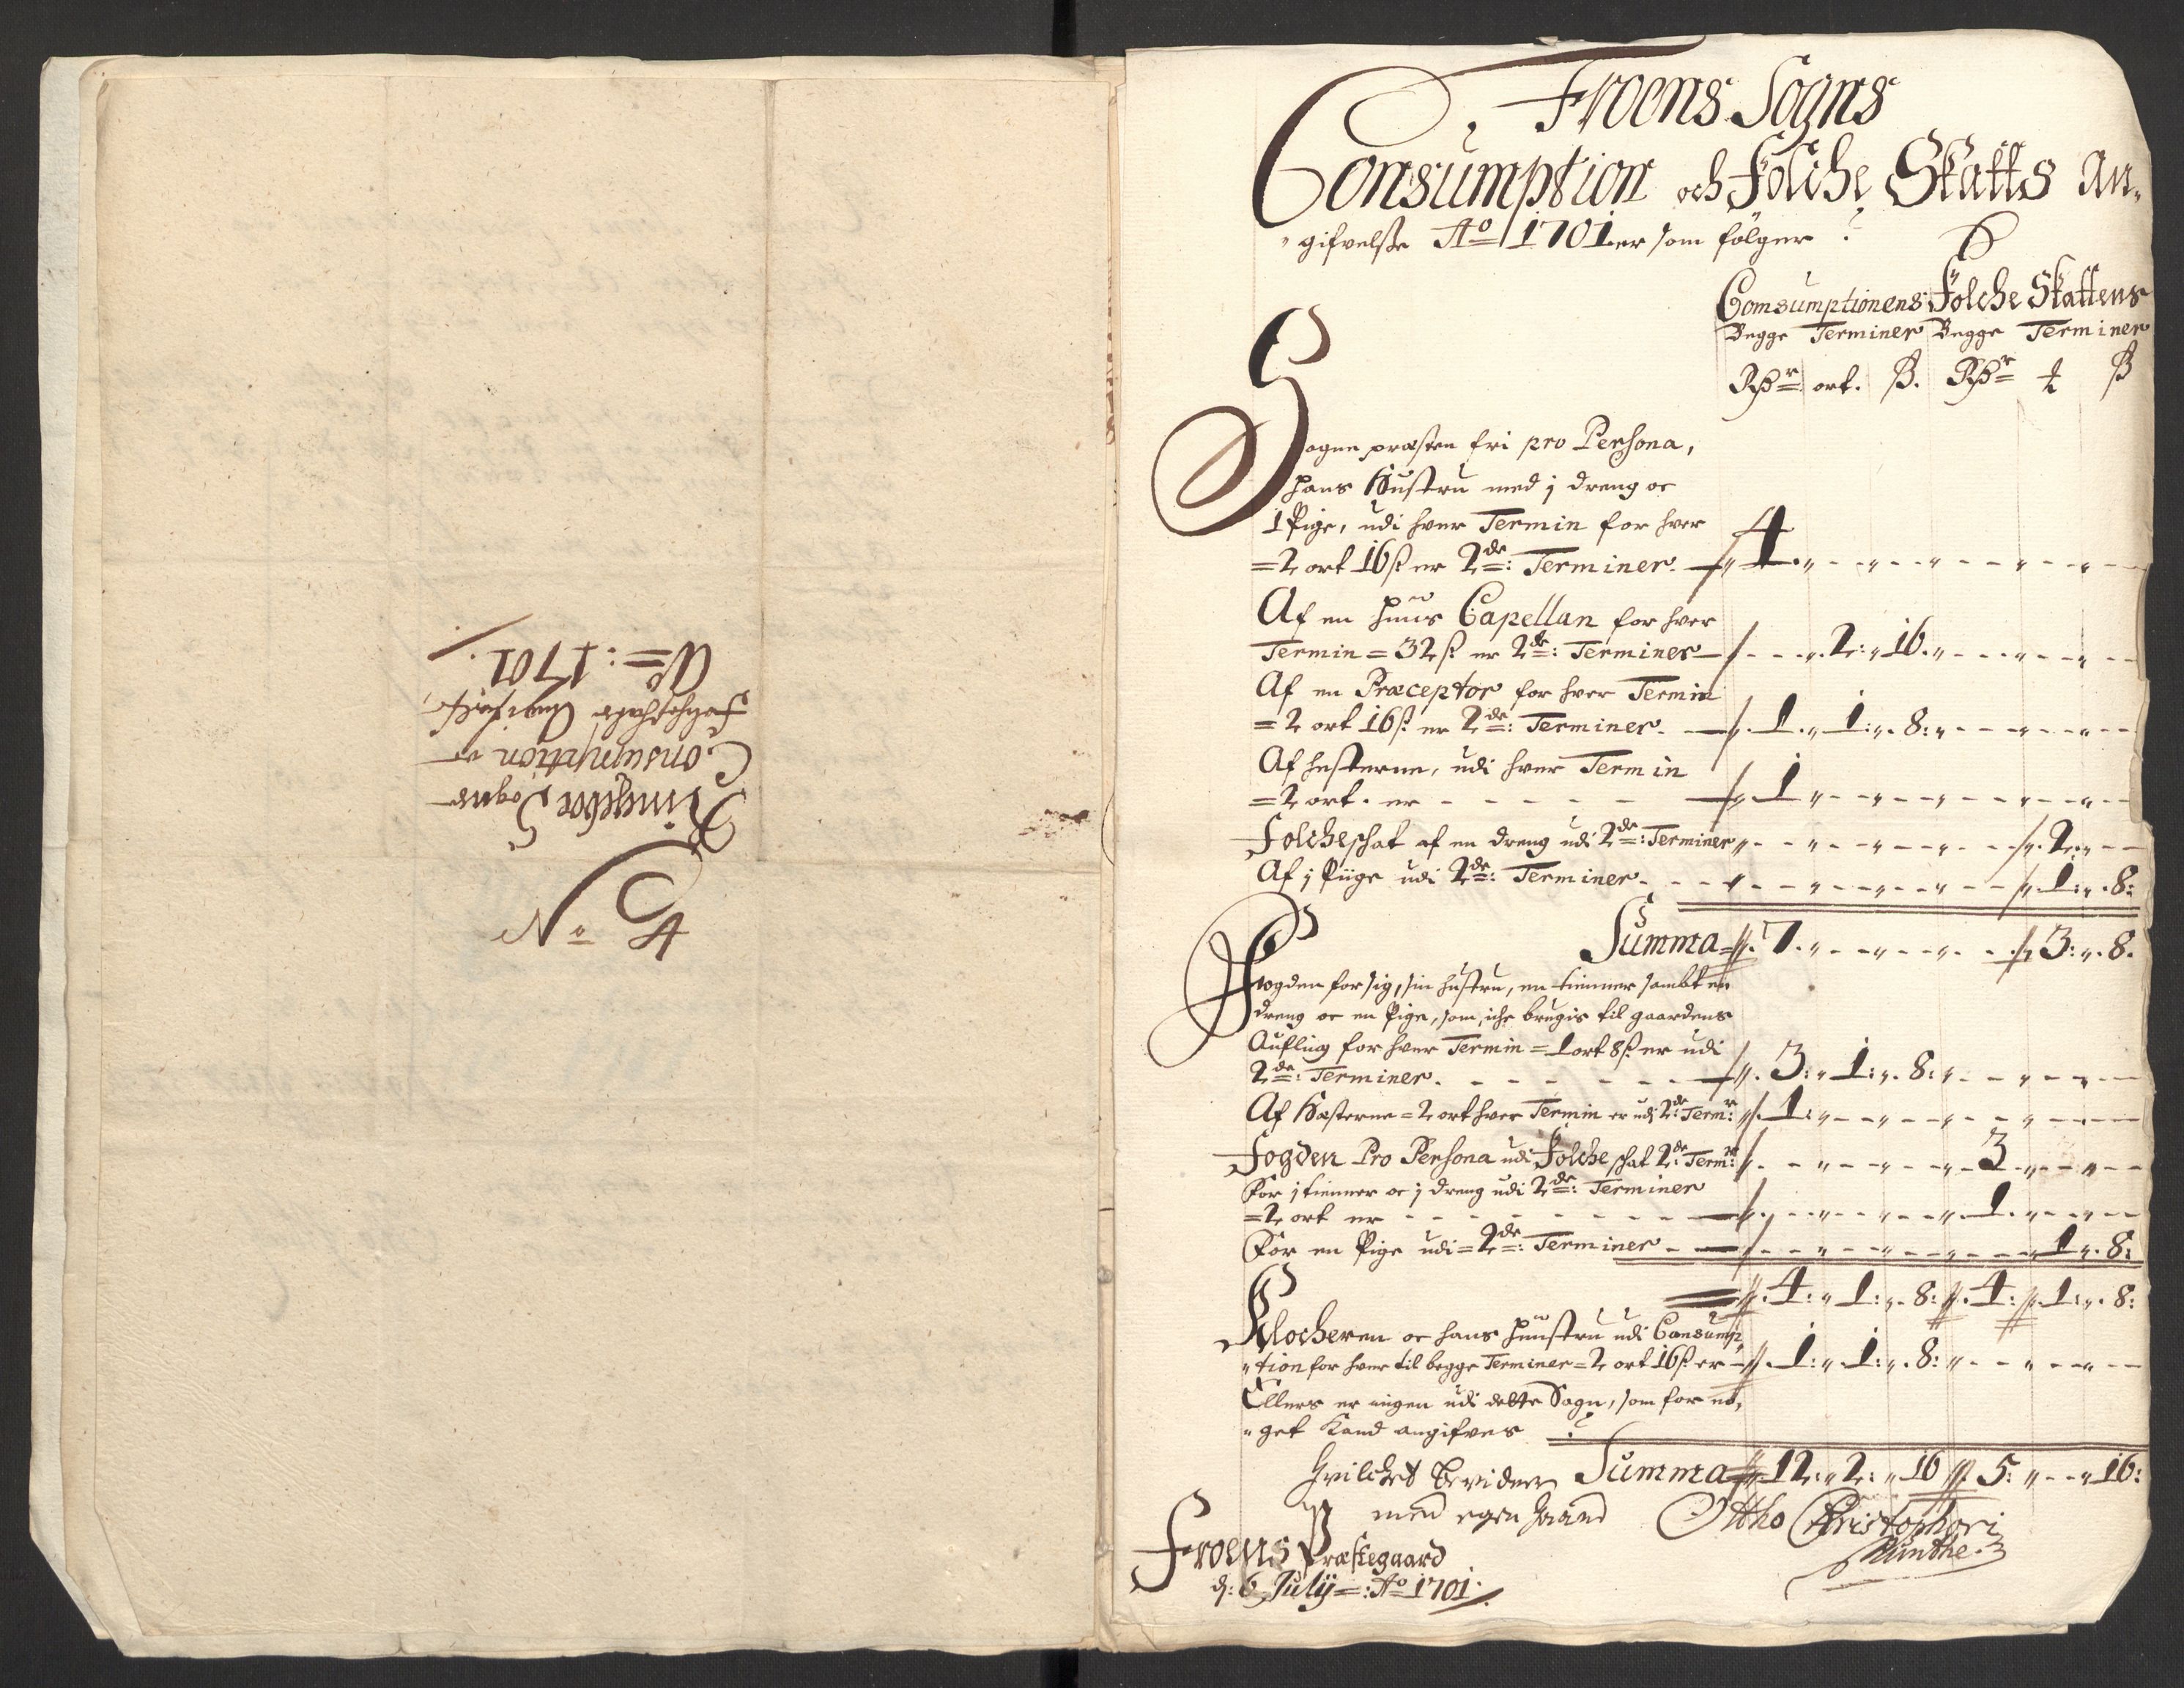 No 4
Ringeboe Sogns
Consumption oc
Folcheschats Angifvelse
Ao: 1701.
Froens Sogns
Consumption och Folche Skatts An-
gifvelsse Ao 1701 er som følger
Comsumptionens Folche Skattens
Begge Terminer Begge Terminer
Rdr ort. ß. Rdr ort ß
Sogne præsten fri pro Persona,
hans Hustru med j dreng oc
1 Pige, udi hver Termin for hver
=2 ort 16 ß er 2de: Terminer. 4
Af en huus Capellan for hver
Termin = 32 ß. er 2de: Terminer 2: 16.
Af en Præceptor for hver Termin
= 2 ort 16 ß er 2de: Terminer. 1. 1: 8:
Af hesterne, udi hver Termin
= 2 ort. er 1
Folcheschat af en dreng udi 2de: Terminer 2:
Af j Piige udi 2de: Terminer. 1: 8:
Summa 7. 3: 8.
Fogden for sig, sin hustru, en tienner sambt en
dreng oc en Pige, som iche brugis til gaardens
Aufling for hver Termin = 1 ort 8 ß. er udi
2de: Terminer. 3: 1: 8:
Af Hæsterne = 2 ort hver Termin er udi 2de: Termr: 1:
Fogden Pro Persona udi Folche schat 2de: Termr: 3
For j tienner oc j dreng udi 2de: Terminer
=2 ort er 1.
For en Pige udi = 2de: Terminer 1. 8:
4: 1: 8: 4: 1: 8:
Klocheren oc hans huustru udi Consump,
tion for hver til begge Terminer = 2 ort 16 ß. er 1: 1: 8:
Ellers er ingen udi dette Sogn, som for no,
get Kand angifves
Hvilchet bevidner Summa 12: 2: 16 5: 16:
med egen haand Ottho Christophori
Munthe.
Froens Præstegaard
d: 6 Julij =: Ao 1701.